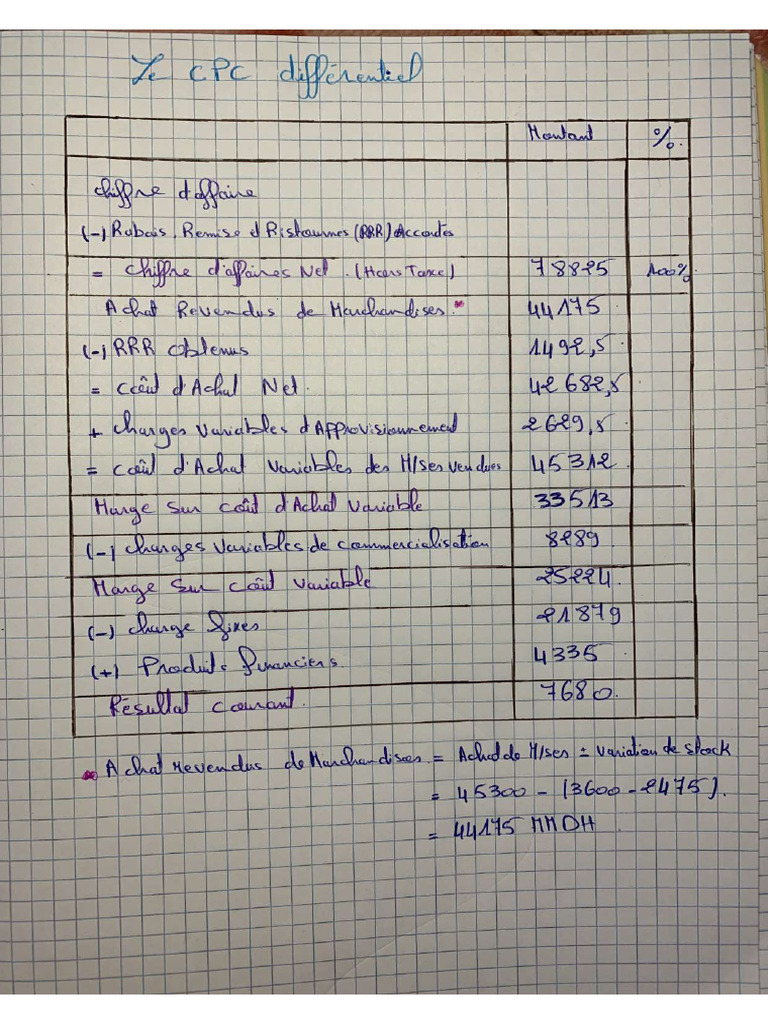 Le CPC différentiel
Montant %
chiffre d'affaire
(-) Rabais, Remise et Ristournes (RRR) Accordés
= chiffre d'affaires Net (Hors Taxe) 78825 100%
Achat Revendus de Marchandises * 44175
(-) RRR obtenus 1492,5
= Coût d'Achat Net. 42682,5
+ charges variables d'Approvisionnement 2629,5
= coût d'Achat variables des M/ses vendues 45312
Marge sur coût d'Achat variable 33513
(-) charges variables de commercialisation 8289
Marge sur coût variable 25224.
(-) charge fixes 21879
(+) Produits financiers 4335
Résultat courant. 7680.
* Achat revendus de Marchandises = Achat de M/ses ± variation de stock
= 45300 - (3600 - 2475).
= 44175 MMDH.